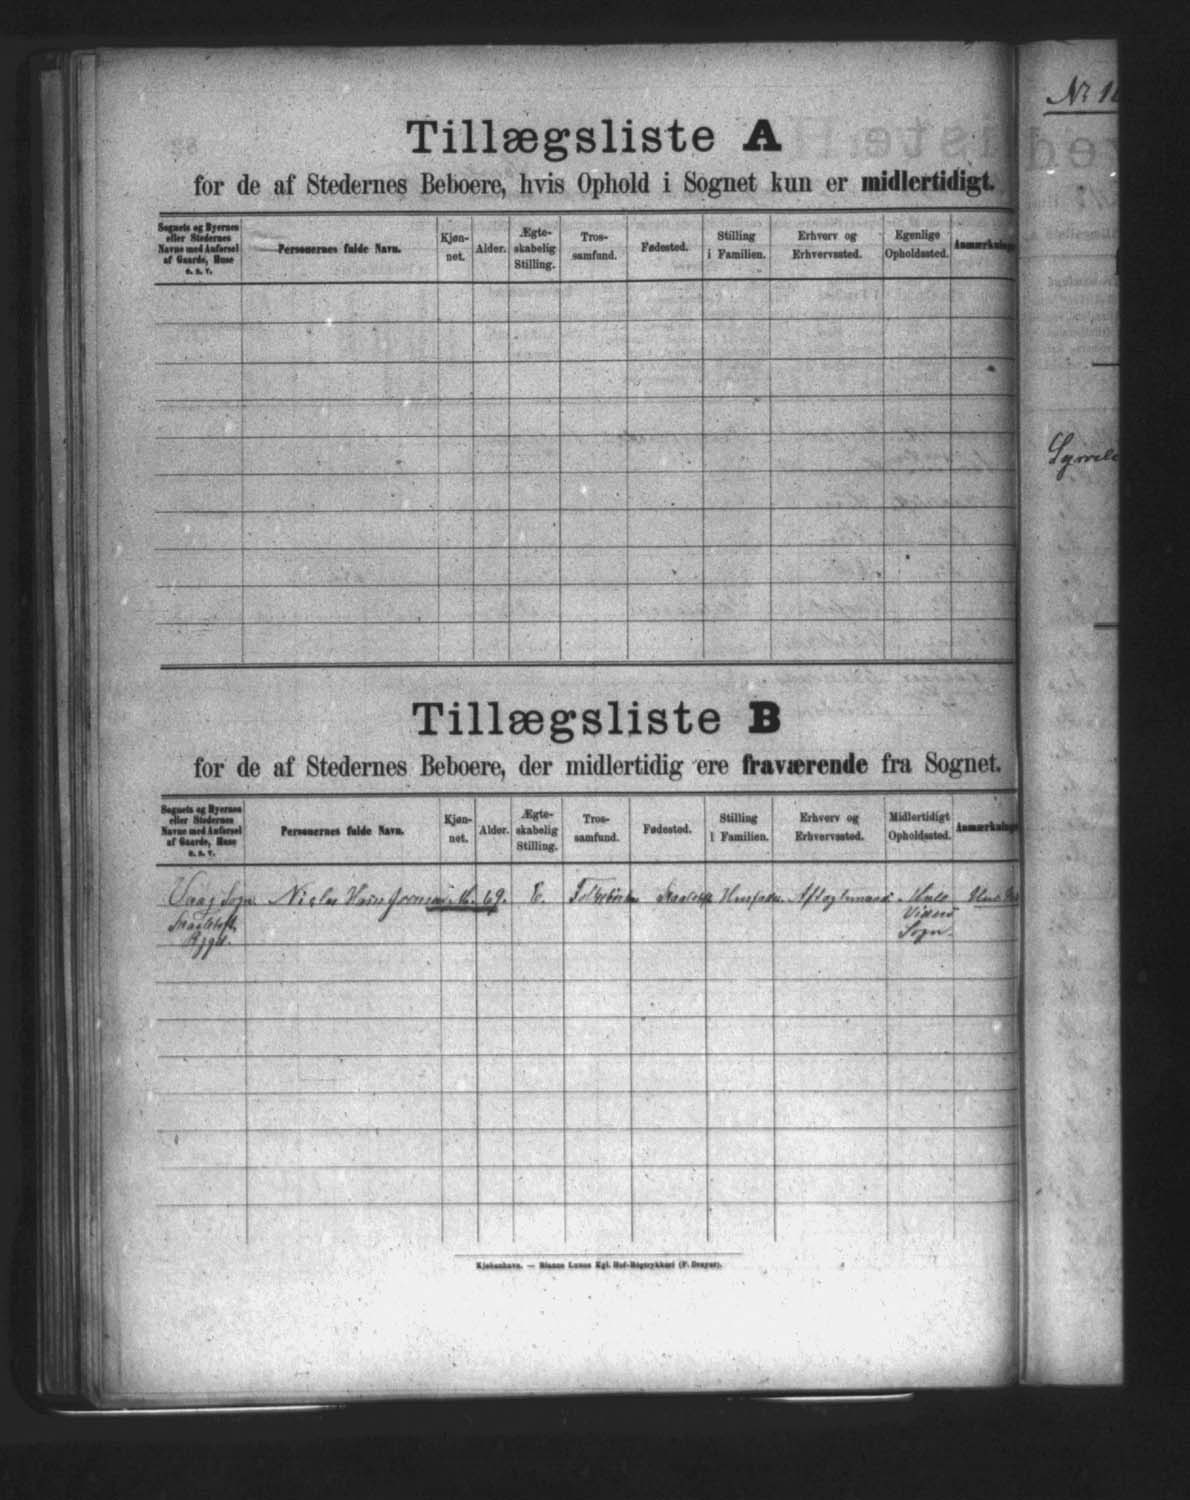 Tillægsliste A
for de af Stedernes Beboere, hvis Ophold i Sognet kun er midlertidigt.
Sognets og Byernes eller Stedernes Navne med Anførsel af Gaarde, Huse o. s. v.
Personernes fulde Navn.
Kjøn-
net.
Alder.
Ægte-
skabelig
Stilling.
Tros-
samfund.
Fødested.
Stilling
i Familien.
Erhverv og
Erhvervssted.
Egenlige
Opholdssted.
Anmærkning
Tillægsliste B
for de af Stedernes Beboere, der midlertidig ere fraværende fra Sognet.
Sognets og Byernes
eller Stedernes
Navne med Anførsel
af Gaarde, Huse
o. s. v.
Personernes fulde Navn.
Kjøn-
net.
Alder.
Ægte-
skabelig
Stilling.
Tros-
samfund.
Fødested.
Stilling
i Familien.
Erhverv og
Erhvervssted.
Midlertidigt
Opholdssted.
Anmærkning
Vaag Sogn
Bygd.
Niclas
M.
69.
E.
Folkekirken
Husfader.
Aftægtsmand
Viderø
Sogn.
Kjøbenhavn. — Bianco Lunos Kgl. Hof-Bogtrykkeri (F. Dreyer).